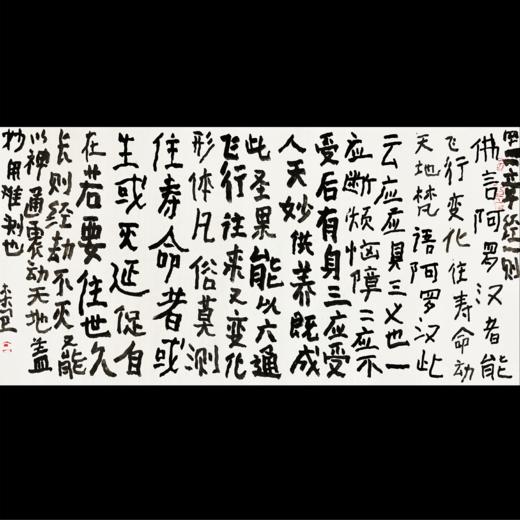 四二章经一则
佛言阿罗汉者能
飞行变化往寿命动
天地梵语阿罗汉此
云应应具三义也一
应断烦恼障二应不
受后有身三应受
人天妙供养既成
此圣果能以六通
飞行往来又变化
形体凡俗莫测
住寿命者或
生或灭延促自
在若要住世久
长则经劫不灭又能
以神通震动天地盖
妙用难测也